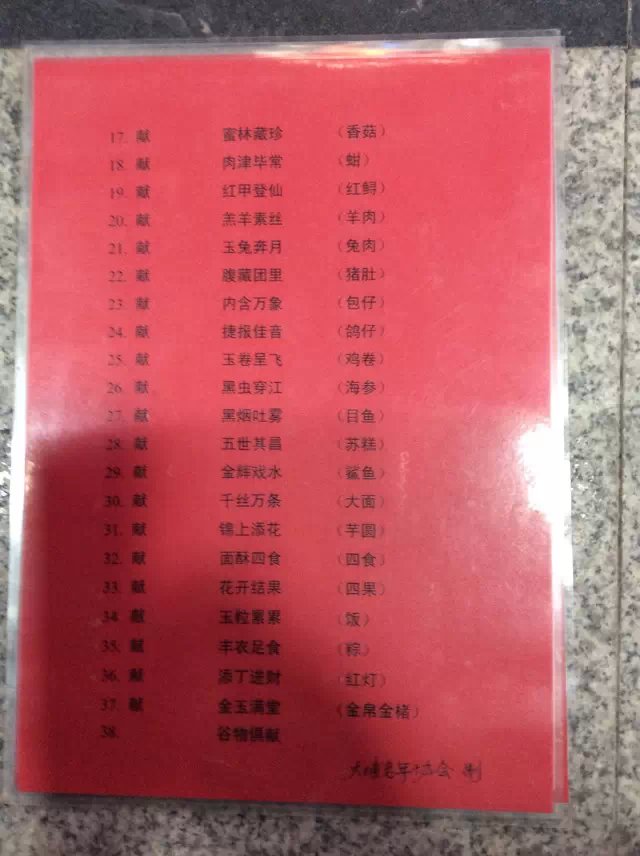 17. 献 蜜林藏珍 （香菇）
18. 献 肉津毕常 （蚶）
19. 献 红甲登仙 （红鲟）
20. 献 羔羊素丝 （羊肉）
21. 献 玉兔奔月 （兔肉）
22. 献 腹藏团里 （猪肚）
23. 献 内含万象 （包仔）
24. 献 捷报佳音 （鸽仔）
25. 献 玉卷呈飞 （鸡卷）
26. 献 黑虫穿江 （海参）
27. 献 黑烟吐雾 （目鱼）
28. 献 五世其昌 （苏糕）
29. 献 金辉戏水 （鲨鱼）
30. 献 千丝万条 （大面）
31. 献 锦上添花 （芋圆）
32. 献 面酥四食 （四食）
33. 献 花开结果 （四果）
34. 献 玉粒累累 （饭）
35. 献 丰衣足食 （粽）
36. 献 添丁进财 （红灯）
37. 献 金玉满堂 （金帛金楮）
38. 谷物俱献
老年协会 制